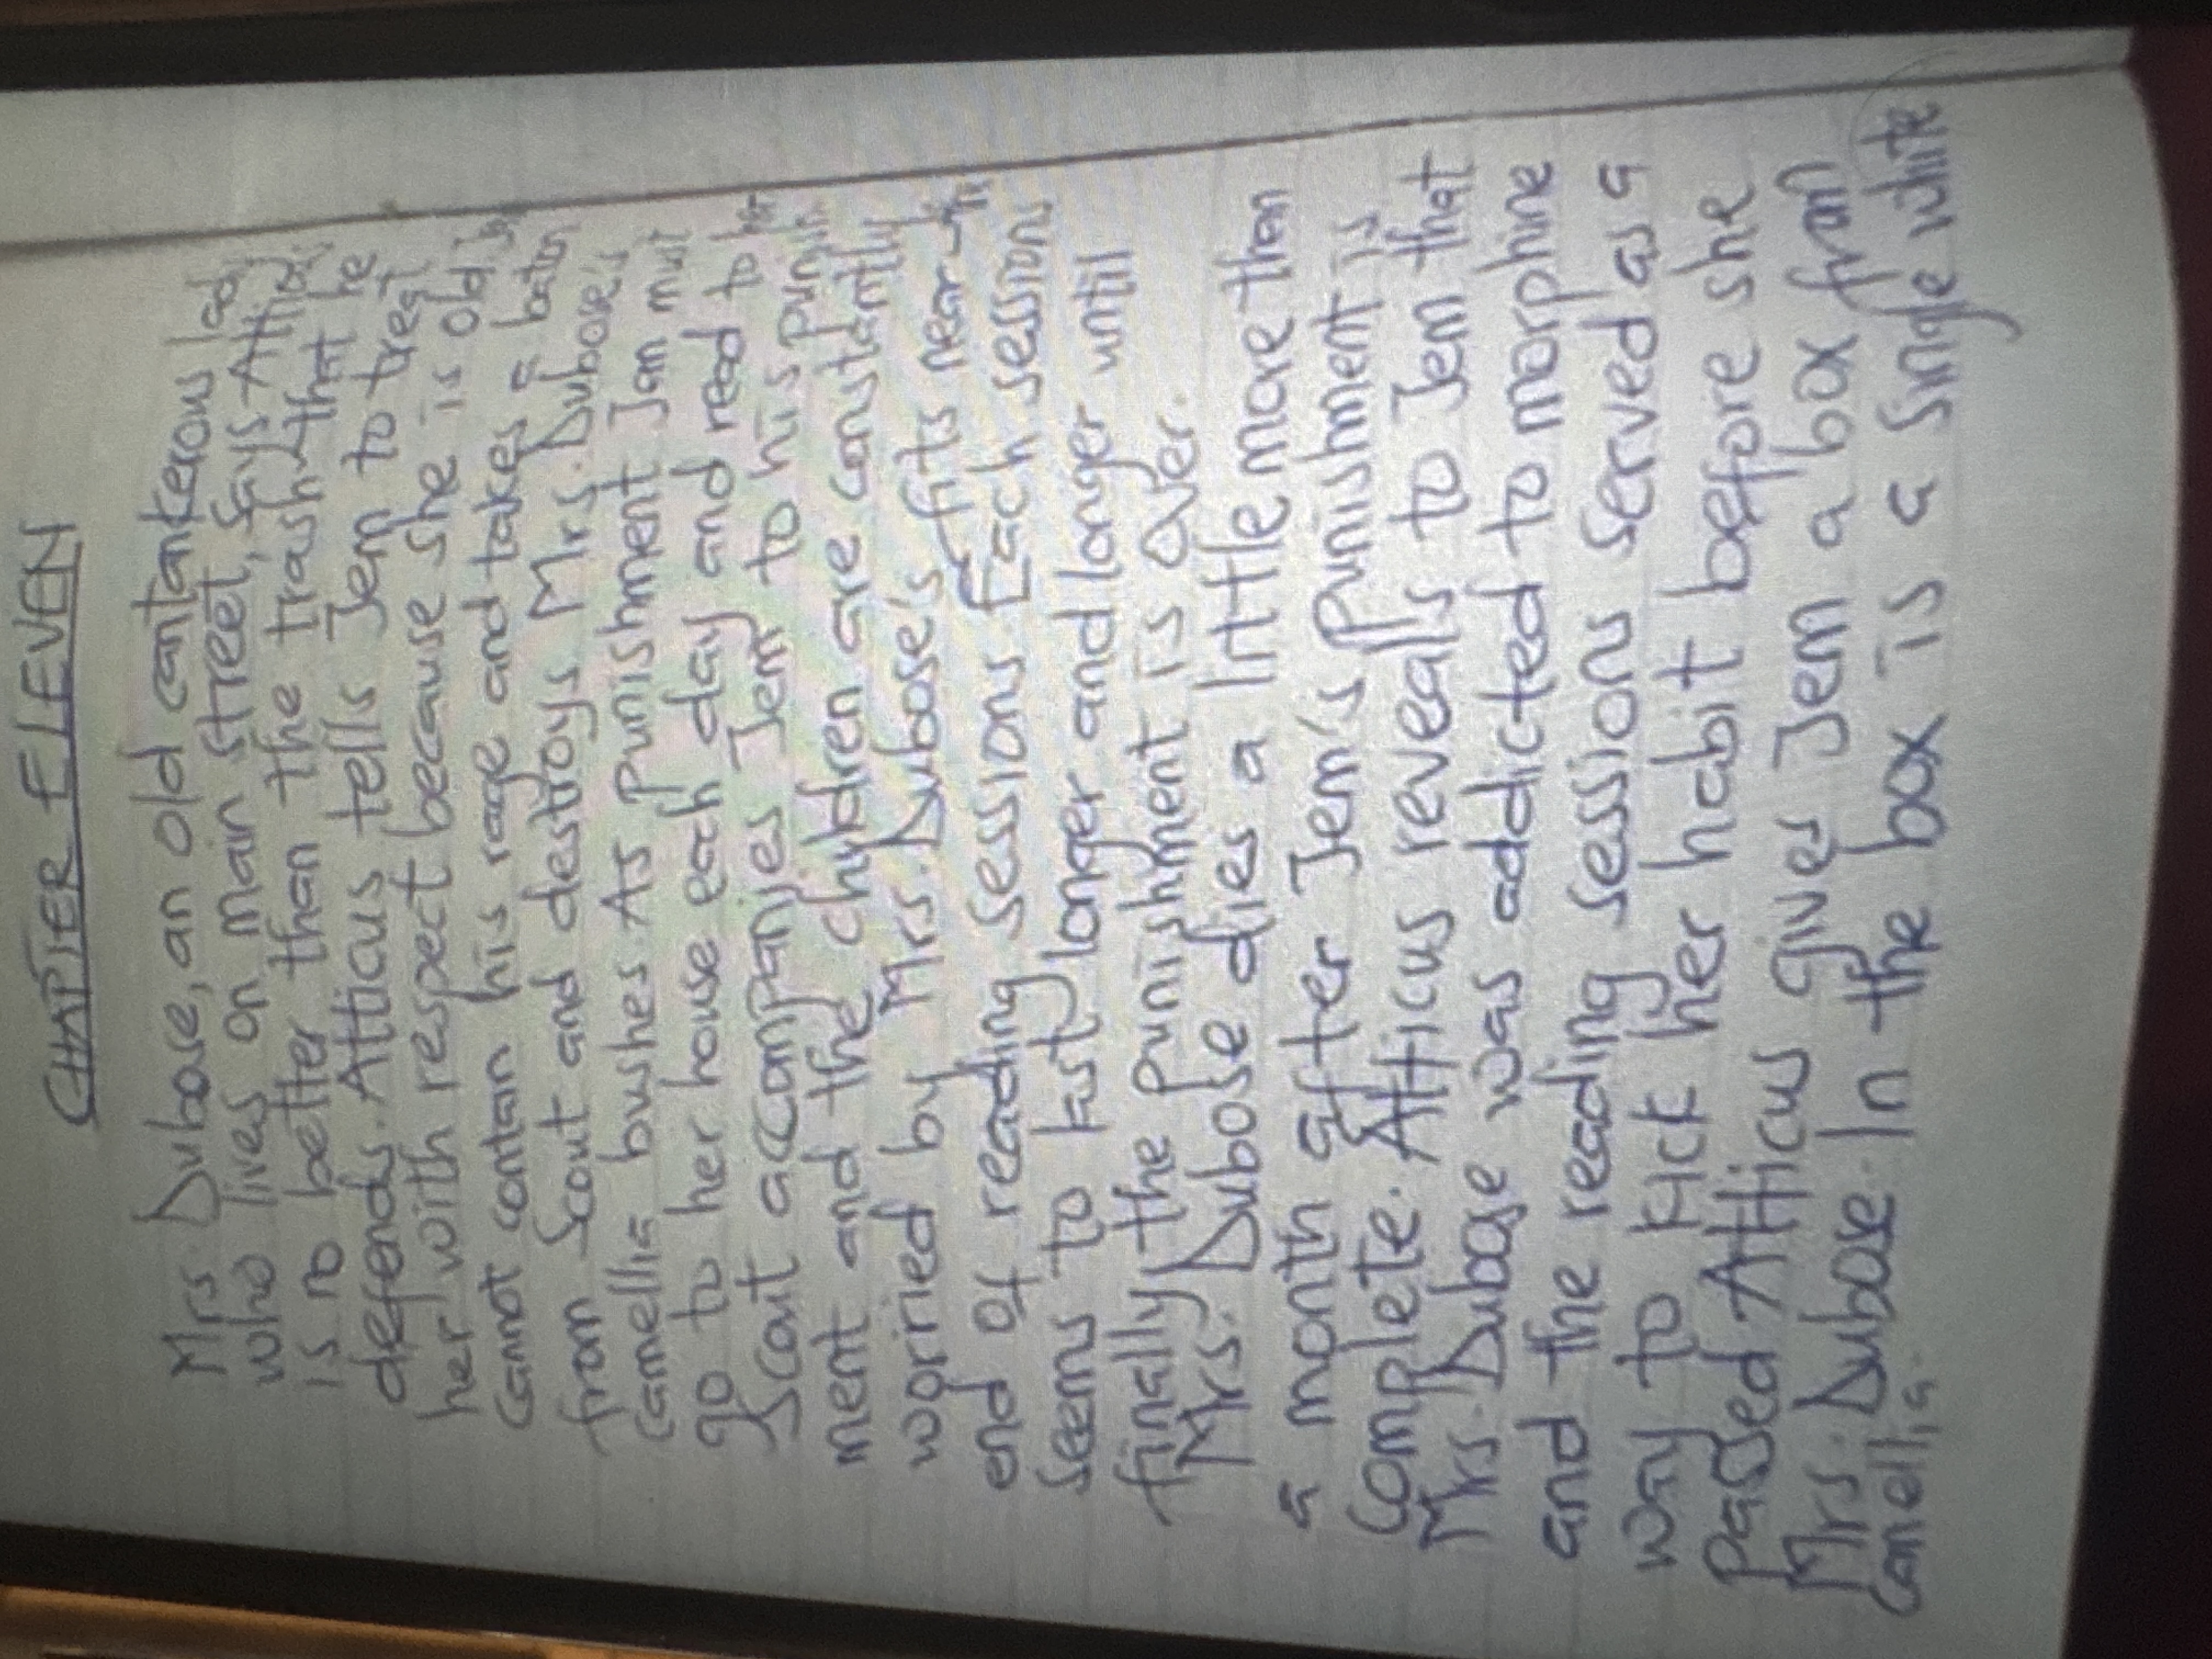 CHAPTER ELEVEN
Mrs. Dubose, an old cantankerous lady
who lives on main street, says Atticus
is no better than the trash that he
defends. Atticus tells Jem to treat
her with respect because she is old
cannot contain his rage and takes a baton
from Scout and destroys Mrs. Dubose's
camellia bushes. As punishment Jem must
go to her house each day and read to her
Scout accompanies Jem to his punish-
ment and the children are constantly
worried by Mrs. Dubose's fits near the
end of reading sessions Each sessions
seems to last longer and longer until
finally, the punishment is over.
Mrs. Dubose dies a little more than
a month after Jem's punishment is
complete. Atticus reveals to Jem that
Mrs. Dubose was addicted to morphine
and the reading sessions served as a
way to kick her habit before she
passed Atticus gives Jem a box from
Mrs. Dubose. In the box is a single white
Camellia.